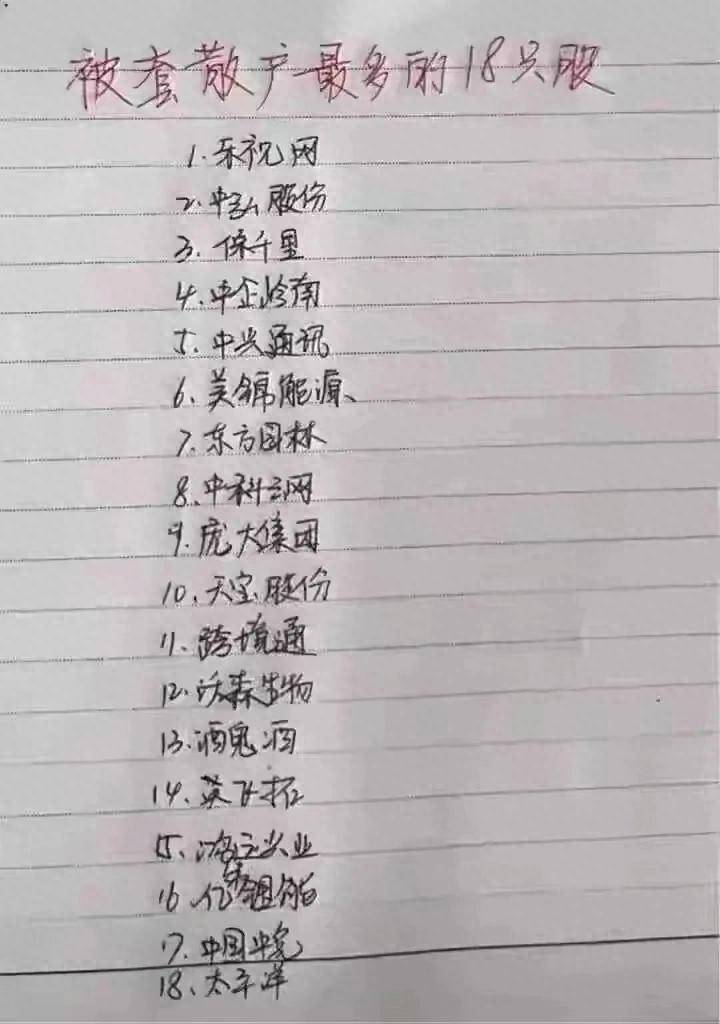 被套散户最多的18只股
1.乐视网
2.中弘股份
3.保千里
4.中企岭南
5.中兴通讯
6.美锦能源、
7.东方园林
8.中科云网
9.庞大集团
10.天宝股份
11.跨境通
12.沃森生物
13.酒鬼酒
14.英飞拓
15.实业
16.亿
17.中国中免
18.太平洋